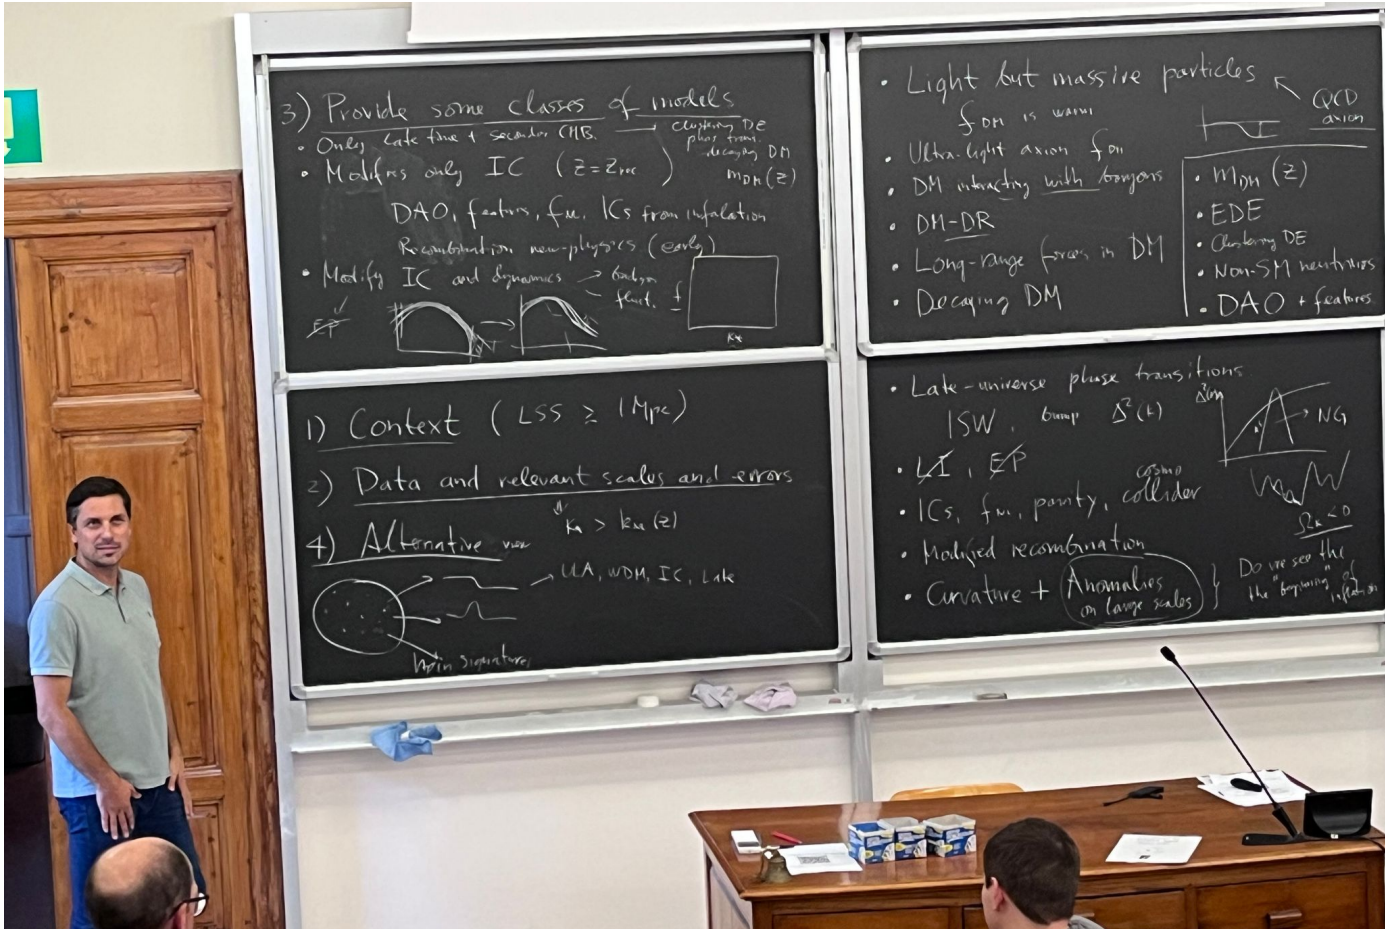 3) Provide some classes of models
• Only late time + secondary CMB. → clustering DE
phase trans.
decaying DM
m_DM(z)
• Modifies only IC (z = z_rec)
DAO, features, f_NL, ICs from infalation
Recombination new-physics (early)
• Modify IC and dynamics
f
1) Context (LSS ≥ 1Mpc)
2) Data and relevant scales and errors
> k_NL(z)
4) Alternative view
→ ULA, WDM, IC, Late
signatures
• Light but massive particles
QCD
axion
f_DM is warm
• Ultra-light axion f_DM
• DM interacting with baryons
• DM-DR
• Long-range forces in DM
• Decaying DM
• m_DM(z)
• EDE
• Clustering DE
• Non-SM neutrinos
• DAO + features
• Late-universe phase transitions
ISW, bump Δ²(k)
→ NG
• LI, EP
• ICs, f_NL, parity, cosmo collider
• Modified recombination
Ω_k < 0
• Curvature + Anomalies
on large scales
Do we see the
the "beginning" of
inflation